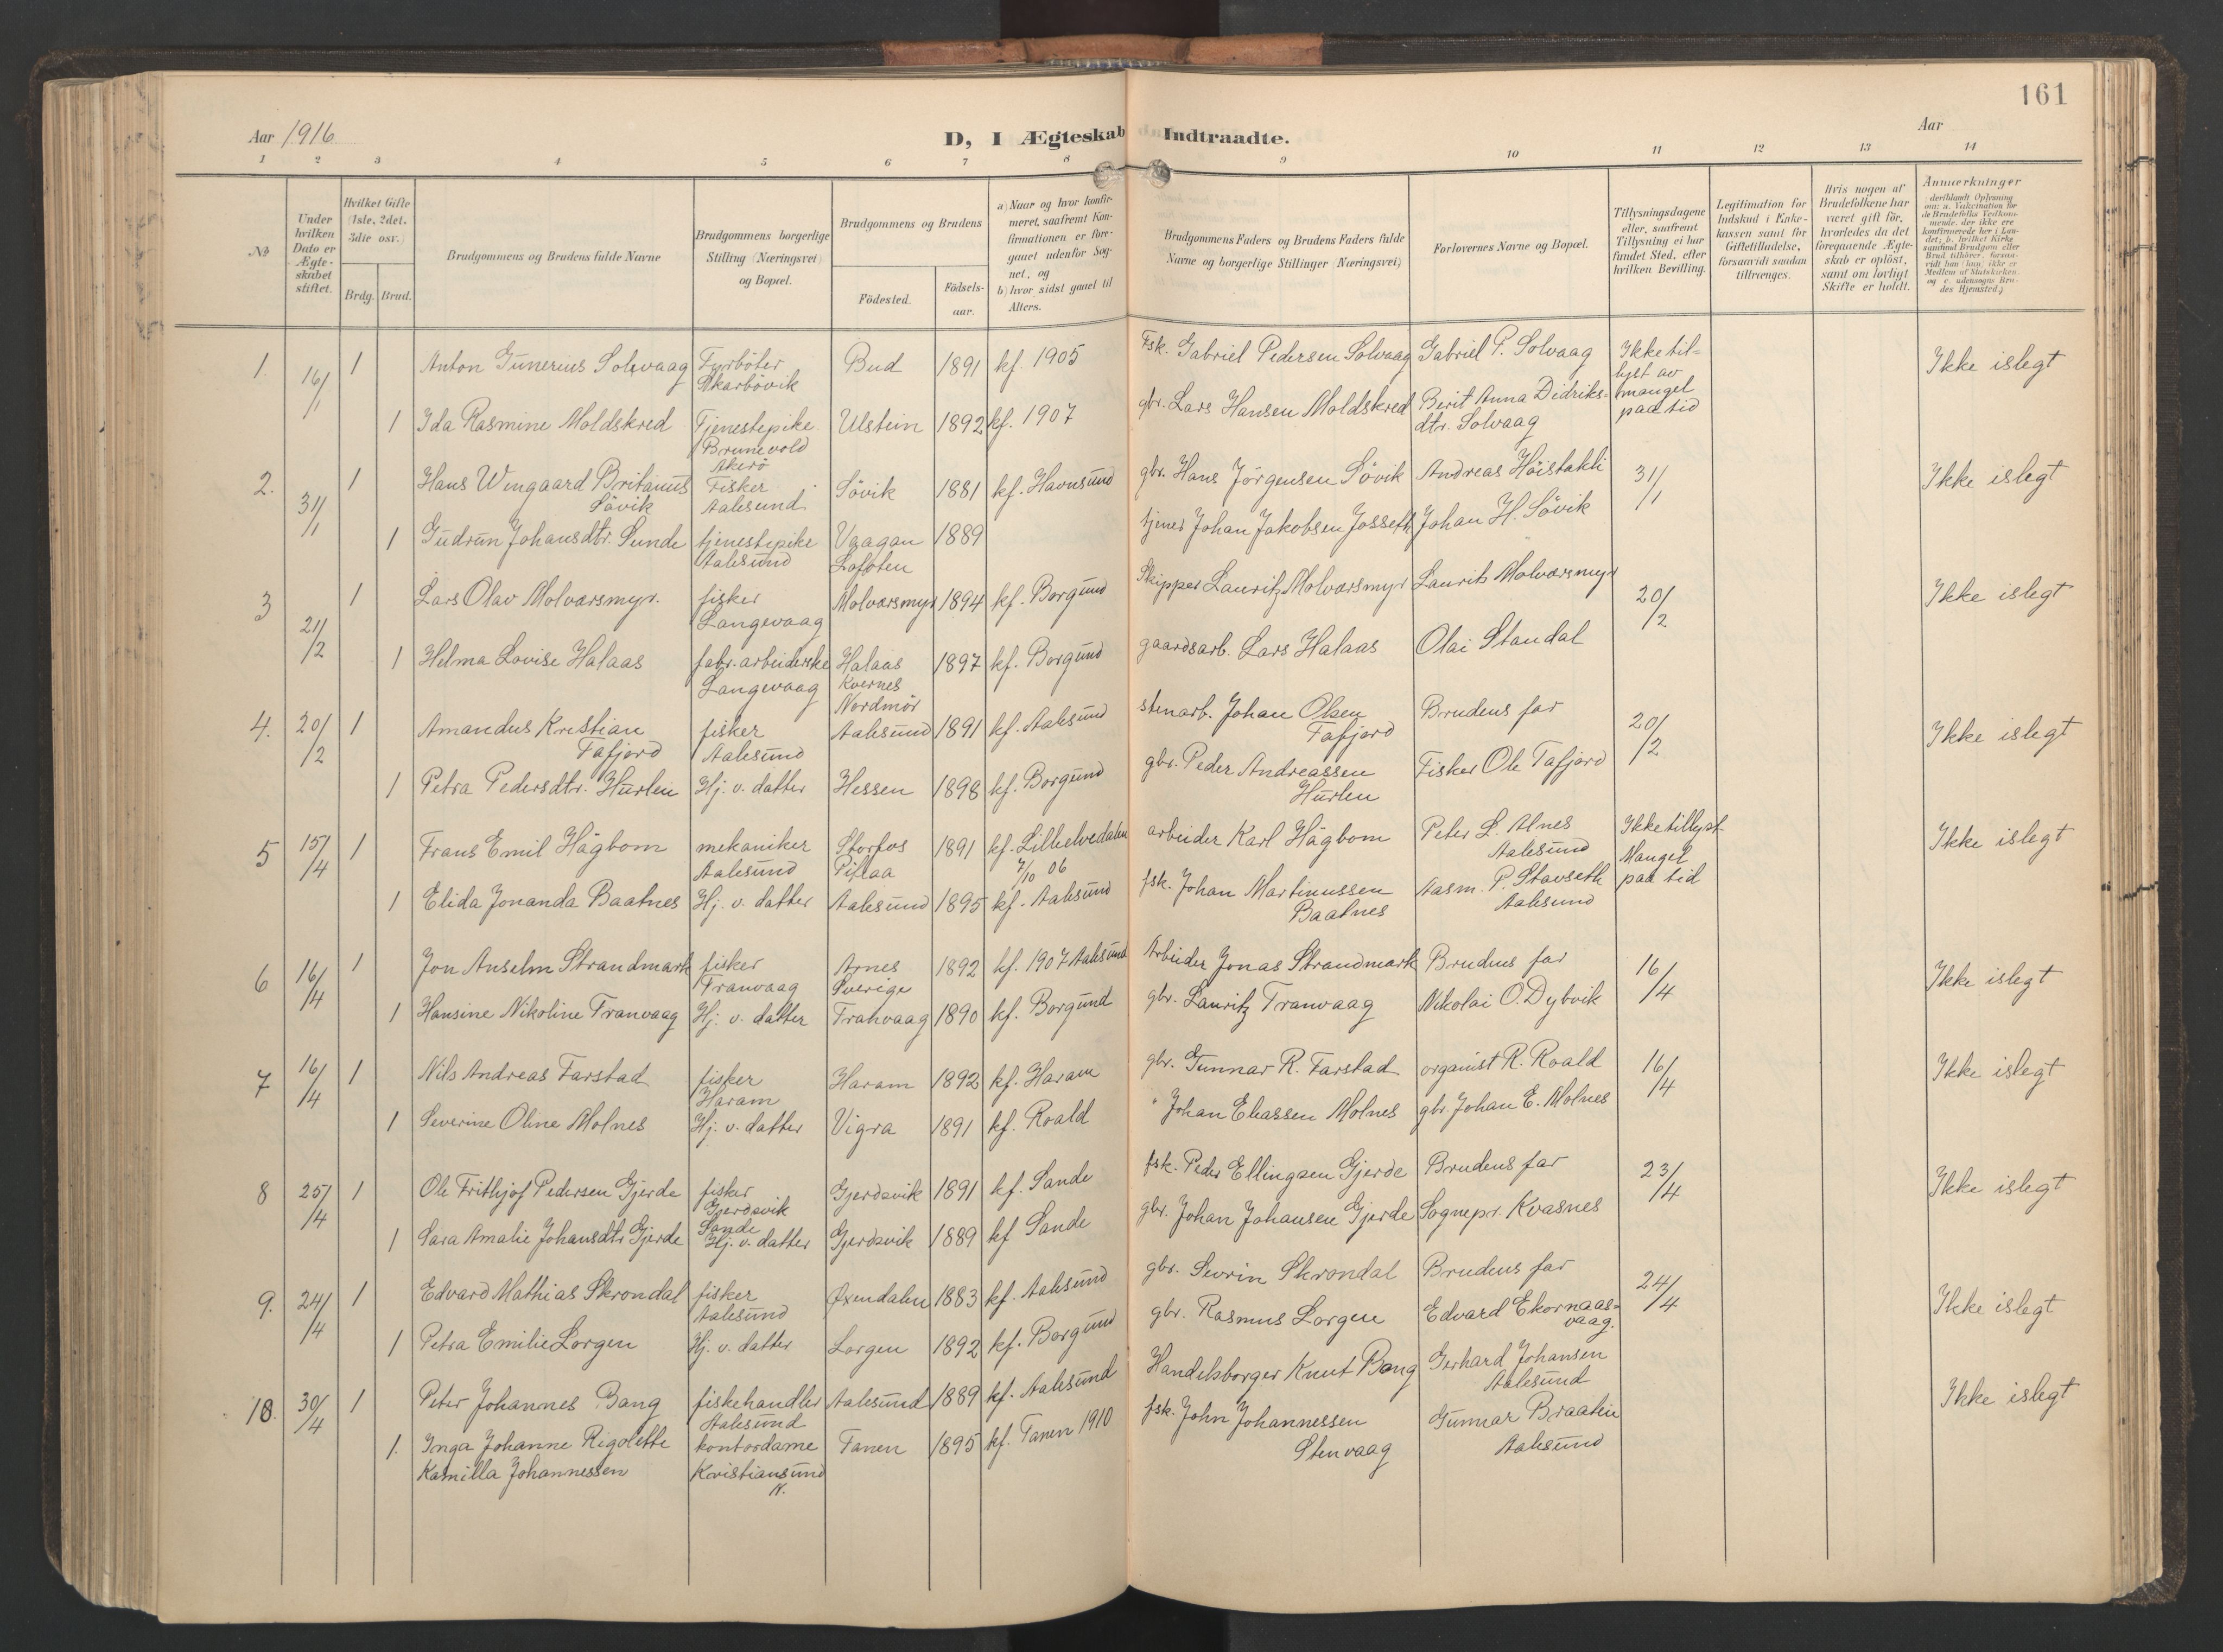 161
Aar 1916
D, I Ægteskab Indtraadte.
Aar
1 2 3 4 5 6 7 8 9 10 11 12 13 14
No
Under hvilken Dato er Ægteskabet stiftet.
Hvilket Gifte (1ste, 2det, 3die osv.)
Brdg. Brud.
Brudgommens og Brudens fulde Navne
Brudgommens borgerlige Stilling (Næringsvei) og Bopæl.
Brudgommens og Brudens
Födested.
Födselsaar.
a) Naar og hvor konfirmeret, saafremt Konfirmationen er foregaaet udenfor Sognet, og
b) hvor sidst gaaet til Alters.
Brudgommens Faders og Brudens Faders fulde Navne og borgerlige Stillinger (Næringsvei)
Forlovernes Navne og Bopæl.
Tillysningsdagene eller, saafremt Tillysning ei har fundet Sted, efter hvilken Bevilling.
Legitimation for Indskud i Enkekassen samt for Giftetilladelse, forsaavidt saadan tiltrænges.
Hvis nogen af Brudefolkene har været gift för, hvorledes da det foregaaende Ægteskab er oplöst, samt om lovligt Skifte er holdt.
Anmerkninger
(deriblandt Oplysning om: a. Vakcination for de Brudefolks Vedkommende, der ikke ere konfirmerede her i Landet; b. hvilket Kirkesamfund Brudgom eller Brud tilhører, forsaavidt han (hun) ikke er Medlem af Statskirken og c. udensogns Brudes Hjemsted.)
1. 16/1 1 Anton Gunerius Solevaag Fyrböter Skarbövik Bud 1891 kf. 1905 Fsk. Gabriel Pedersen Solvaag Gabriel P. Solvaag Ikke tillyst av mangel paa tid Ikke islegt
1 Ida Rasmine Moldskred Tjenestepike Brunevold Akerö Ulstein 1892 kf. 1907 gbr. Lars Hansen Moldskred Berit Anna Didriksdtr. Solvaag
2. 31/1 1 Hans Wingaard Britanus Sövik Fisker Aalesund Sövik 1881 kf. Havnsund gbr. Hans Jörgensen Sövik Andreas Höistakli 31/1 Ikke islegt
1 Gudrun Johansdtr. Sunde tjenestepike Aalesund Vaagan Lofoten 1889 tjener Johan Jakobsen Josseth Johan H. Sövik
3 21/2 1 Lars Olav Molværsmyr. fisker Langevaag Molværsmyr 1894 kf. Borgund Skipper Lauritz Molværsmyr Laurits Molværsmyr 20/2 Ikke islegt
1 Helma Lovise Halaas fabr. arbeiderske Langevaag Halaas Kvernes Nordmör 1897 kf. Borgund gaardsarb. Lars Halaas Olai Standal
4. 20/2 1 Amandus Kristian Tafjord fisker Aalesund Aalesund 1891 kf. Aalesund stenarb. Johan Olsen Tafjord Brudens far 20/2 Ikke islegt
1 Petra Pedersdtr. Hurlen Hj. v. datter Hessen 1898 kf. Borgund gbr. Peder Andreassen Hurlen Fisker Ole Tafjord
5 15/4 1 Frans Emil Hägbom mekaniker Aalesund Storfos Piteaa 1891 kf. Lillelvedalen 7/10 06 arbeider Karl Hägbom Peter L. Alnes Aalesund Ikke tillyst Mangel paa tid Ikke islegt
1 Elida Jonanda Baatnes Hj. v. datter Aalesund 1895 kf. Aalesund fsk. Johan Martinussen Baatnes Aasm. P. Stavseth Aalesund
6 16/4 1 Jon Anselm Strandmark fisker Tranvaag Arnes Sverige 1892 kf. 1907 Aalesund Arbeider Jonas Strandmark Brudens far 16/4 Ikke islegt
1 Hansine Nikoline Tranvaag Hj. v. datter Tranvaag 1890 kf. Borgund gbr. Lauritz Tranvaag Nikolai O. Dybvik
7 16/4 1 Nils Andreas Farstad fisker Haram Haram 1892 kf. Haram gbr. Gunnar R. Farstad organist R. Roald 16/4 Ikke islegt
1 Severine Oline Molnes Hj. v. datter Vigra 1891 kf. Roald " Johan Eliassen Molnes gbr. Johan E. Molnes
8 25/4 1 Ole Frithjof Pedersen Gjerde fisker Gjerdsvik Sande Gjerdsvik 1891 kf. Sande fsk. Peder Ellingsen Gjerde Brudens far 23/4 Ikke islegt
1 Sara Amalie Johansdtr Gjerde Hj. v. datter Gjerdsvik 1889 kf Sande gbr. Johan Johansen Gjerde Sognepr. Kvasnes
9. 24/4 1 Edvard Mathias Skrondal fisker Aalesund Øxendalen 1883 kf. Aalesund gbr. Sevrin Skrondal Brudens far 24/4 Ikke islegt
1 Petra Emilie Lorgen Hj. v. datter Lorgen 1892 kf. Borgund gbr. Rasmus Lorgen Edvard Ekornaasvaag.
10. 30/4 1 Peter Johannes Bang fiskehandler Aalesund Aalesund 1889 kf. Aalesund Handelsborger Knut Bang Gerhard Johansen Aalesund Ikke islegt
1. Inga Johanne Rigolette Kamilla Johannessen kontordame Kristiansund N. Tanen 1895 kf. Tanen 1910 fsk. John Johannessen Stenvaag Gunnar Braaten Aalesund